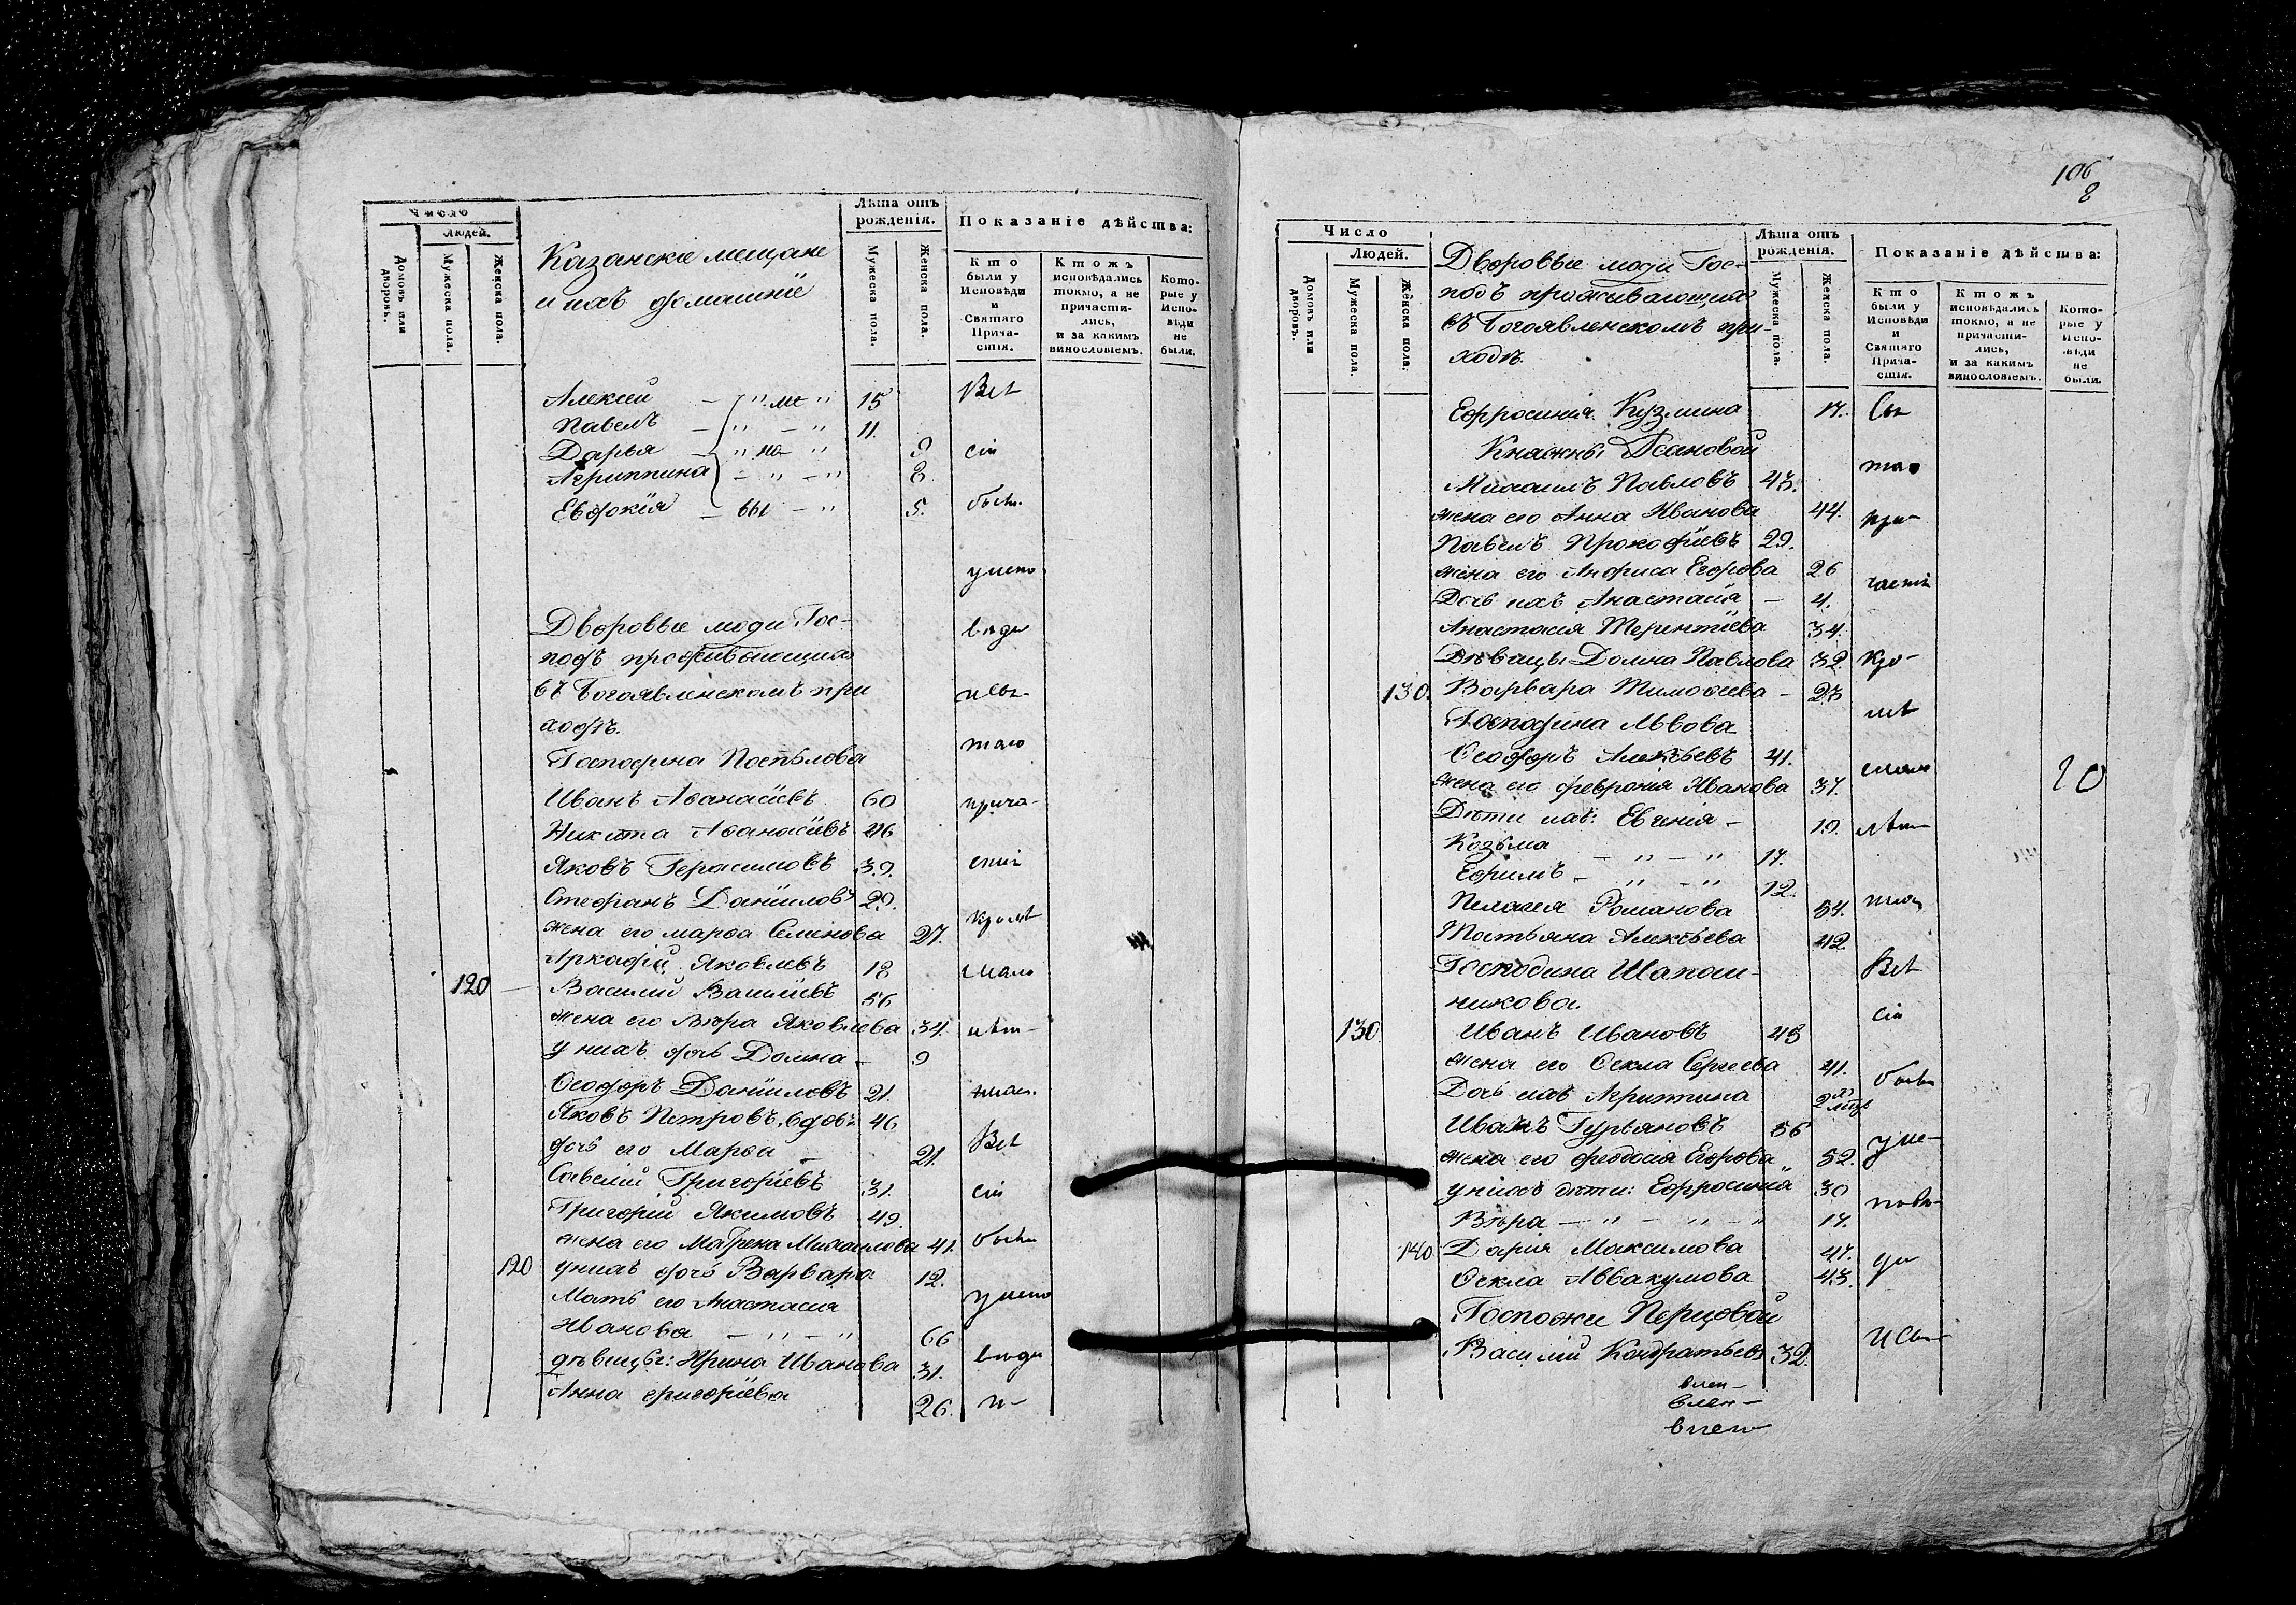 Число
Людей.
Домовъ или дворовъ.
Мужеска пола.
Женска пола.
Казанскіе мещане
и ихъ домашніе
Лѣта отъ рожденія.
Мужеска пола.
Женска пола.
Показаніе дѣйства:
Кто были у Исповѣди и Святаго Прича- стія.
Ктожъ исповѣдались токмо, а не причасти- лись, и за какимъ винословіемъ.
Кото- рые у Испо- вѣди не были.
Алексій 15 Всѣ
Павелъ 11.
Дарья 9 сіи
Агриппина 8.
Евдокія 5. бывъ
у испо
Дворовые люди Гос- вѣди
подъ проживающихъ
въ Богоявленскомъ при
ходѣ. таго
Господина Поспѣлова
Иванъ Аѳанасіевъ 60 прича-
Никита Аѳанасіевъ 46
Яковъ Герасимовъ 39. стія
Стефанъ Даніиловъ 29. кромѣ
жена его Марѳа Семенова 27.
Аркадій Яковлевъ 18 мало
120 Василій Василіевъ 56
жена его Вѣра Яковлева 34. лѣт-
у нихъ дочь Домна 9
Ѳеодоръ Даніиловъ 21.
Яковъ Петровъ, вдовъ 46
дочь его Марѳа 21. Всѣ
Савелій Григоріевъ 31. сіи
Григорій Якимовъ 49.
жена его Матрена Михаилова 41.
120 у нихъ дочь Варвара 12.
Мать его Анастасія у испо
Иванова 66
дѣвицы: Ирина Иванова 31. вѣди
Анна Григоріева 26. и-
106
8
Число
Людей.
Домовъ или дворовъ.
Мужеска пола.
Женска пола.
Дворовые люди Гос-
подъ проживающихъ
въ Богоявленскомъ при-
ходѣ.
Лѣта отъ рожденія.
Мужеска пола.
Женска пола.
Показаніе дѣйства:
Кто были у Исповѣди и Святаго Прича- стія.
Ктожъ исповѣдались токмо, а не причасти- лись, и за какимъ винословіемъ.
Кото- рые у Испо- вѣди не были.
Ефросинія Кузмина 17.
Княжны
Михаилъ Павловъ 43.
жена его Анна Иванова 44. при
Павелъ Прокофіевъ 29.
жена его Анфиса Егорова 26 частія
Дочь ихъ Анастасія 4.
Анастасія Терентіева 34.
Дѣвицы Домна Павлова 32. кро-
130. Варвара Тимоѳеева 23
Господина Львова мѣ
Ѳеодоръ Алексѣевъ 41.
жена его Февронія Иванова 37.
Дѣти ихъ: Евгенія 19. лѣт-
Козьма 17.
Ефимъ 12.
Пелагея Романова 54.
Татьяна Алексѣева 42
Господина Шапош- Всѣ
никова. сіи
130 Иванъ Ивановъ 43
жена его Ѳекла Сергеева 41.
Дочь ихъ Агриппина 2
Иванъ Гурьяновъ 56
жена его Феодосія Егорова 52.
у нихъ дѣти: Ефросинія 30
Вѣра 17.
140 Дарія Максимова 47.
Ѳекла Аввакумова 43.
Госпожи Перцовой
Василій Кондратьевъ 32.
влен-
влен-